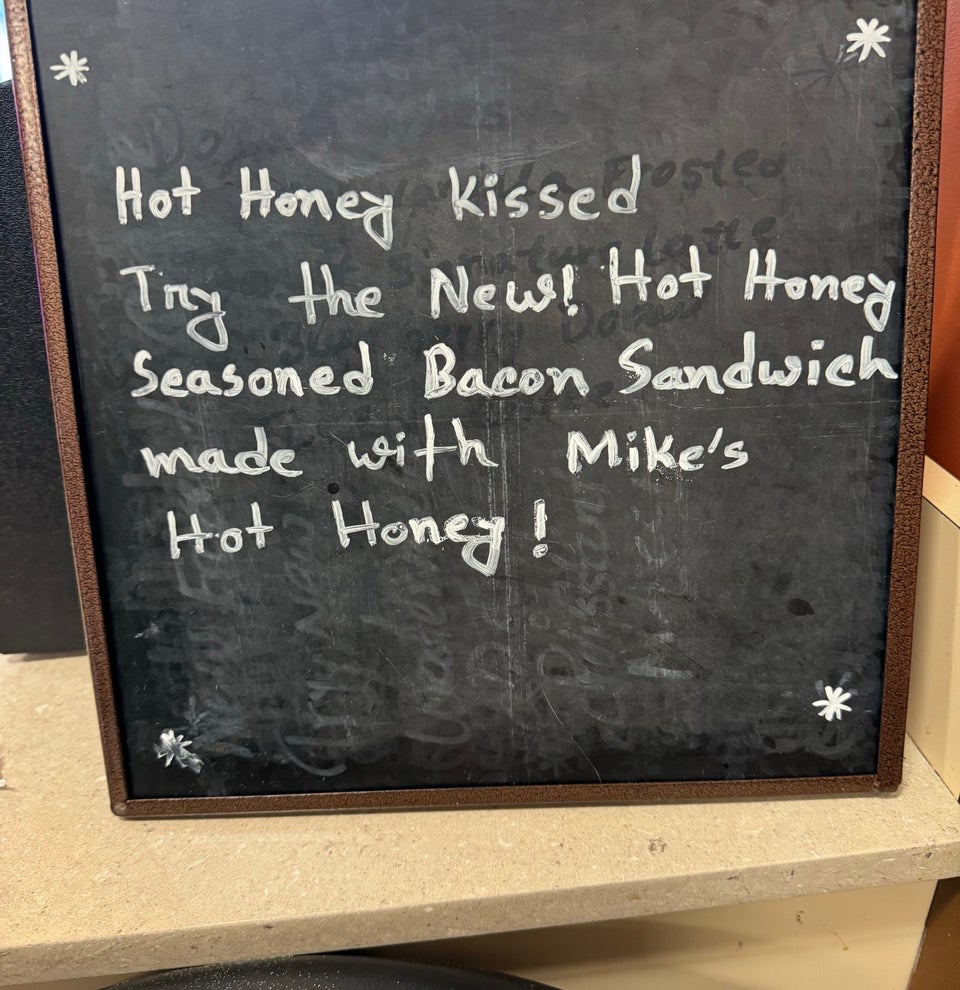 Hot Honey Kissed
Try the New! Hot Honey
Seasoned Bacon Sandwich
made with Mike's
Hot Honey!